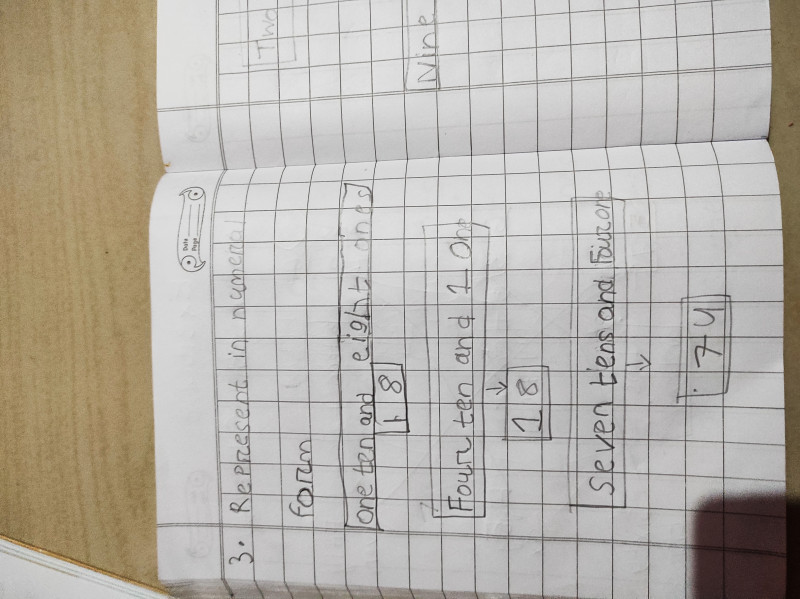 Two
Nine
Date
Page
3. Represent in numeral
form
one ten and eight ones
18
Four ten and 1 one
18
Seven tens and Four one
74